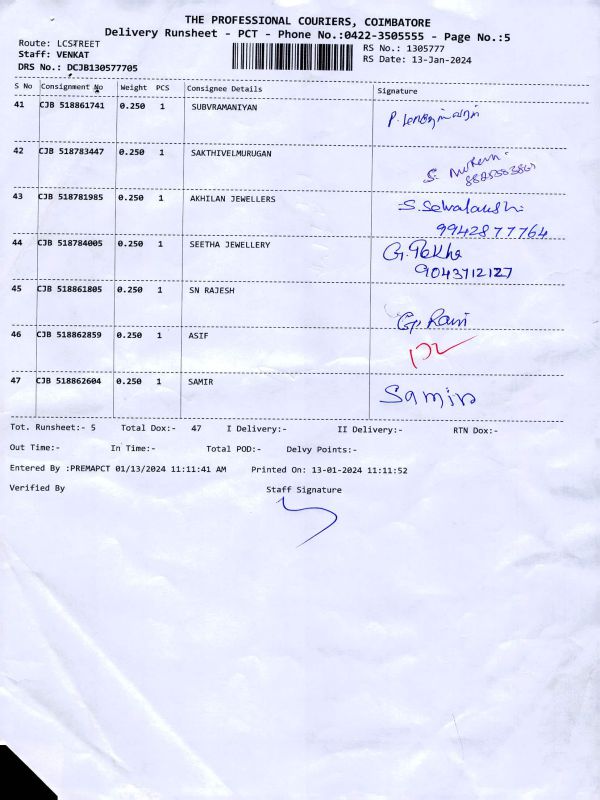 THE PROFESSIONAL COURIERS, COIMBATORE
Delivery Runsheet - PCT - Phone No.:0422-3505555 - Page No.:5
Route: LCSTREET
RS No.: 1305777
Staff: VENKAT
RS Date: 13-Jan-2024
DRS No.: DCJB130577705
S No Consignment No Weight PCS Consignee Details Signature
41 CJB 518861741 0.250 1 SUBVRAMANIYAN
42 CJB 518783447 0.250 1 SAKTHIVELMURUGAN
43 CJB 518781985 0.250 1 AKHILAN JEWELLERS
9942877764
44 CJB 518784005 0.250 1 SEETHA JEWELLERY G. Rekha
9043712127
45 CJB 518861805 0.250 1 SN RAJESH
Gp Ravi
46 CJB 518862859 0.250 1 ASIF
47 CJB 518862604 0.250 1 SAMIR Samir
Tot. Runsheet:- 5 Total Dox:- 47 I Delivery:- II Delivery:- RTN Dox:-
Out Time:- In Time:- Total POD:- Delvy Points:-
Entered By :PREMAPCT 01/13/2024 11:11:41 AM Printed On: 13-01-2024 11:11:52
Verified By Staff Signature